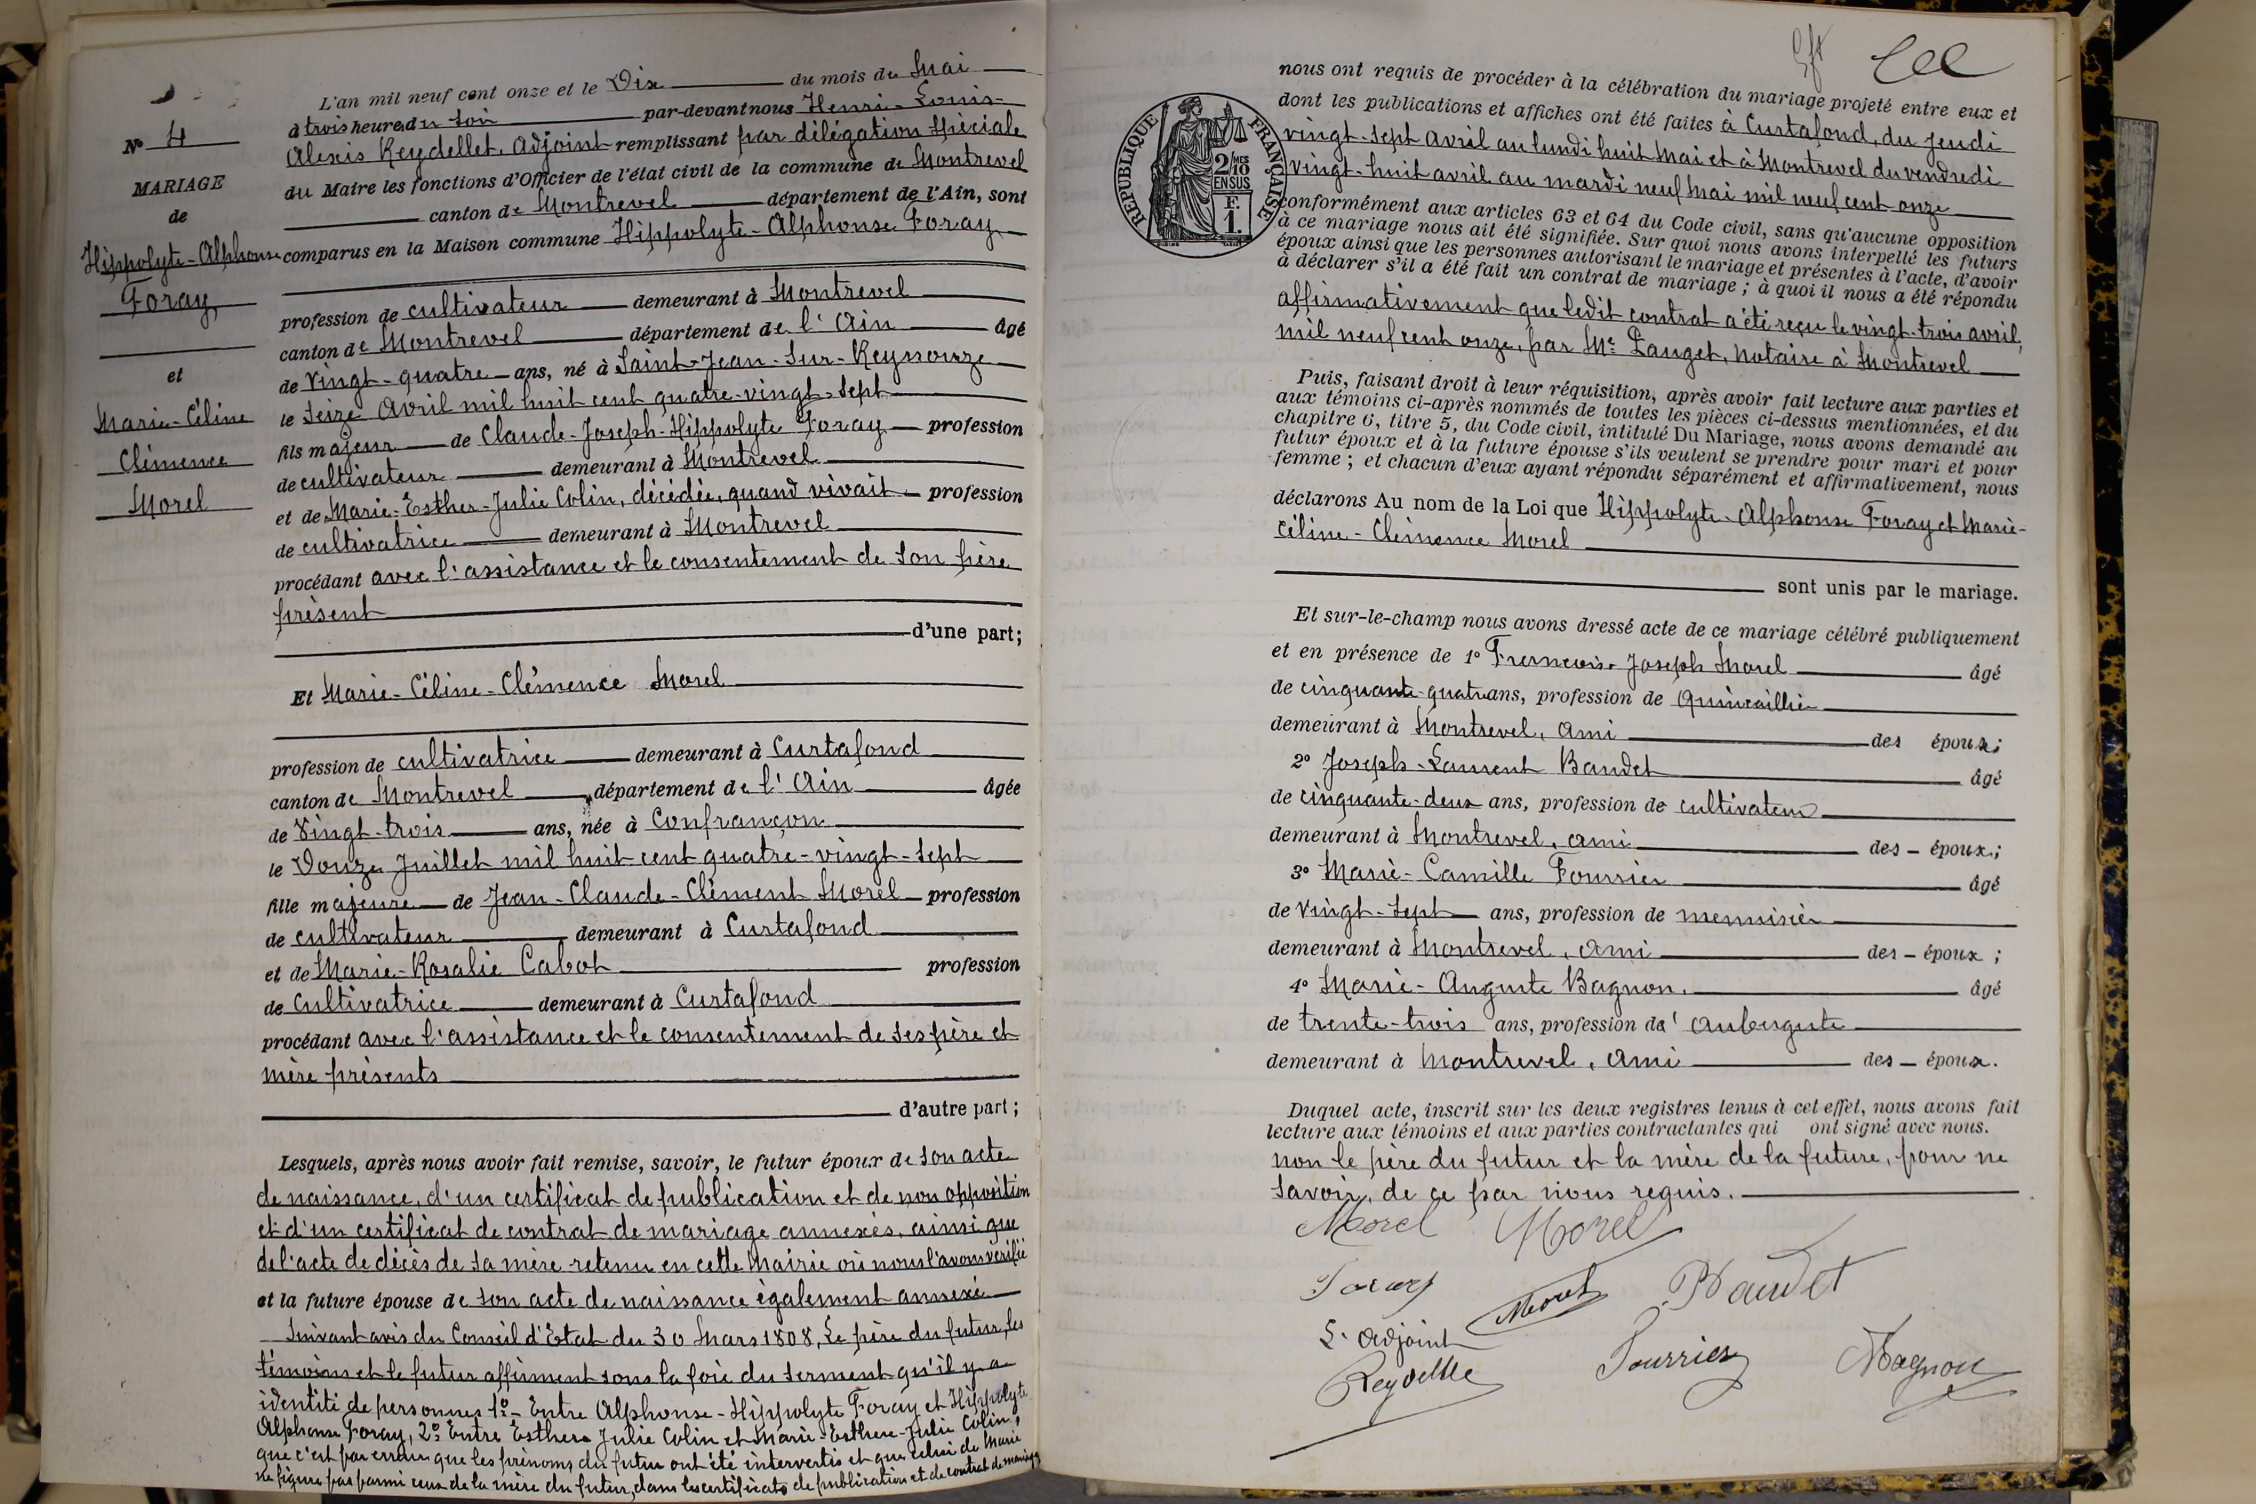 L'an mil neuf cent onze et le Dix du mois de Mai
à trois heures du soir par-devant nous Henri-Louis-
Alexis Reydellet, Adjoint remplissant par délégation spéciale
du Maire les fonctions d'Officier de l'état civil de la commune de Montrevel
canton de Montrevel département de l'Ain, sont
comparus en la Maison commune Hippolyte-Alphonse Foray
profession de cultivateur demeurant à Montrevel
canton de Montrevel département de l'Ain âgé
de Vingt-quatre ans, né à Saint-Jean-sur-Reyssouze
le seize Avril mil huit cent quatre-vingt-sept
fils majeur de Claude-Joseph-Hippolyte Foray profession
de cultivateur demeurant à Montrevel
et de Marie-Esther-Julie Colin, décédée, quand vivait profession
de cultivatrice demeurant à Montrevel
procédant avec l'assistance et le consentement de son père
présent
d'une part;
Et Marie-Céline-Clémence Morel
profession de cultivatrice demeurant à Curtafond
canton de Montrevel département de l'Ain âgée
de Vingt-trois ans, née à Confrançon
le Douze Juillet mil huit cent quatre-vingt-sept
fille majeure de Jean-Claude-Clément Morel profession
de cultivateur demeurant à Curtafond
et de Marie-Rosalie Cabot profession
de cultivatrice demeurant à Curtafond
procédant avec l'assistance et le consentement de ses père et
mère présents
d'autre part;
Lesquels, après nous avoir fait remise, savoir, le futur époux de son acte
de naissance, d'un certificat de publication et de non opposition
et d'un certificat de contrat de mariage annexés, ainsi que
de l'acte de décès de sa mère retenu en cette Mairie où nous l'avons vérifié
et la future épouse de son acte de naissance également annexé
Suivant avis du Conseil d'Etat du 30 Mars 1808, Le père du futur, les
témoins et le futur affirment sous la foie du serment qu'il y a
identité de personnes 1º- Entre Alphonse-Hippolyte Foray et Hippolyte
Alphonse Foray, 2º Entre Esther Julie Colin et Marie-Esther-Julie Colin,
que c'est par erreur que les prénoms du futur ont été intervertis et que celui de Marie
ne figure pas parmi ceux de la mère du futur, dans les certificats de publication et de contrat de mariage
Nº 4
MARIAGE
de
Hippolyte-Alphonse
Foray
et
Marie-Céline
Clémence
Morel
RÉPUBLIQUE FRANÇAISE
2/10 MES
EN SUS
F.
1.
nous ont requis de procéder à la célébration du mariage projeté entre eux et
dont les publications et affiches ont été faites à Curtafond, du jeudi
vingt-sept avril au lundi huit Mai et à Montrevel du vendredi
vingt-huit avril au mardi neuf Mai mil neuf cent onze
conformément aux articles 63 et 64 du Code civil, sans qu'aucune opposition
à ce mariage nous ait été signifiée. Sur quoi nous avons interpellé les futurs
époux ainsi que les personnes autorisant le mariage et présentes à l'acte, d'avoir
à déclarer s'il a été fait un contrat de mariage; à quoi il nous a été répondu
affirmativement que ledit contrat a été reçu le vingt-trois avril,
mil neuf cent onze, par Me Lauget, notaire à Montrevel
Puis, faisant droit à leur réquisition, après avoir fait lecture aux parties et
aux témoins ci-après nommés de toutes les pièces ci-dessus mentionnées, et du
chapitre 6, titre 5, du Code civil, intitulé Du Mariage, nous avons demandé au
futur époux et à la future épouse s'ils veulent se prendre pour mari et pour
femme; et chacun d'eux ayant répondu séparément et affirmativement, nous
déclarons Au nom de la Loi que Hippolyte-Alphonse Foray et Marie-
Céline-Clémence Morel
sont unis par le mariage.
Et sur-le-champ nous avons dressé acte de ce mariage célébré publiquement
et en présence de 1º Francois-Joseph Morel âgé
de cinquante-quatre ans, profession de quincaillier
demeurant à Montrevel, ami des époux;
2º Joseph-Laurent Baudet âgé
de cinquante-deux ans, profession de cultivateur
demeurant à Montrevel, ami des époux;
3º Marie-Camille Fourrier âgé
de vingt-sept ans, profession de menuisier
demeurant à Montrevel, ami des époux;
4º Marie-Auguste Bagnon, âgé
de trente-trois ans, profession d'aubergiste
demeurant à Montrevel, ami des époux.
Duquel acte, inscrit sur les deux registres tenus à cet effet, nous avons fait
lecture aux témoins et aux parties contractantes qui ont signé avec nous.
non le père du futur et la mère de la future, pour ne
savoir, de ce par nous requis.
Morel Morel
Foray Morel Baudet
L'Adjoint
Reydellet Fourrier Bagnon